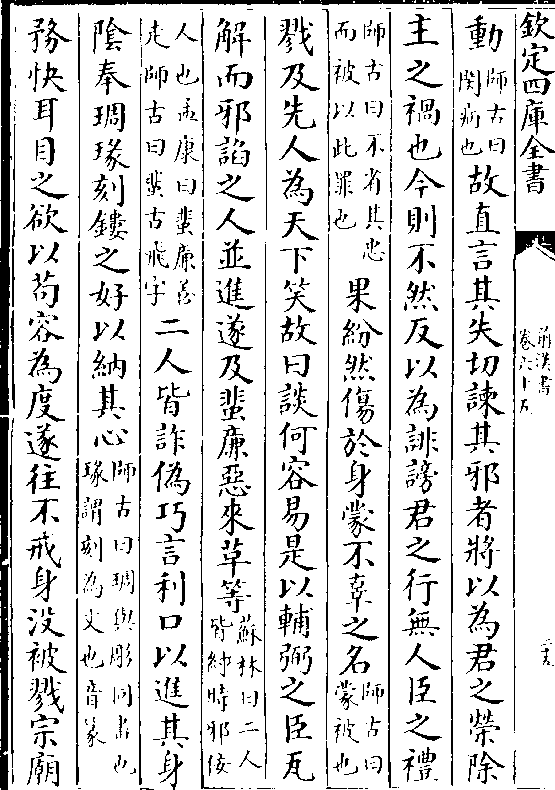 欽定四庫全書
前漢書
卷六十五
動師古曰閔病也故直言其失切諫其邪者將以為君之榮除
主之禍也今則不然反以為誹謗君之行無人臣之禮
師古曰不省其忠而被以此罪也果紛然傷於身蒙不辜之名師古曰蒙被也
戮及先人為天下笑故曰談何容易是以輔弼之臣瓦
解而邪諂之人並進遂及蜚廉惡來草等蘇林曰二人皆紂時邪佞
人也孟康曰蜚廉善走師古曰蜚古飛字二人皆詐偽巧言利口以進其身
陰奉琱瑑刻鏤之好以納其心師古曰琱與彫同畫也瑑謂刻為文也音篆
務快耳目之欲以苟容為度遂往不戒身没被戮宗廟